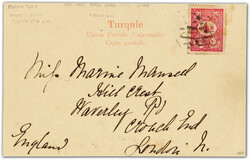 Turquie
Union Postale Universelle
Carte postale
Miss Marine Mansell
Hill Crest
Waverley Rd
Crouch End
London N.
England